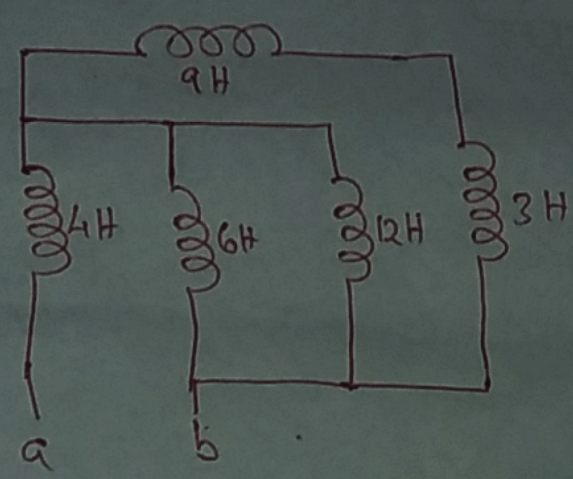 9H
4H
6H
12H
3H
a
b